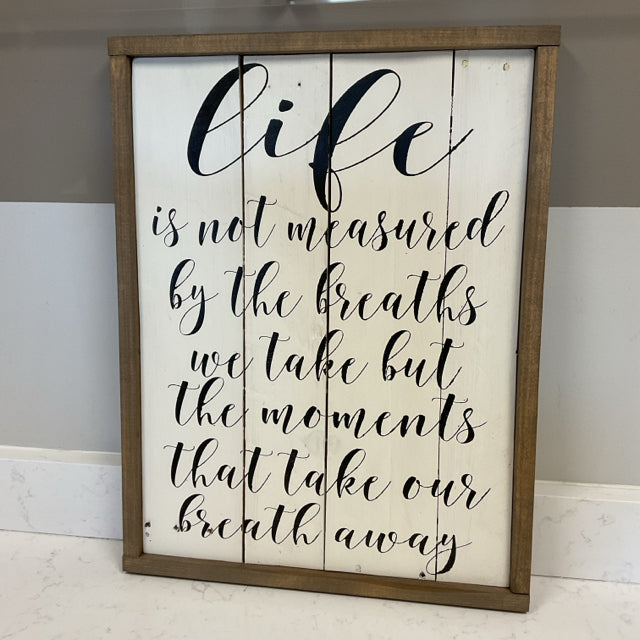 life
is not measured
by the breaths
we take but
the moments
that take our
breath away